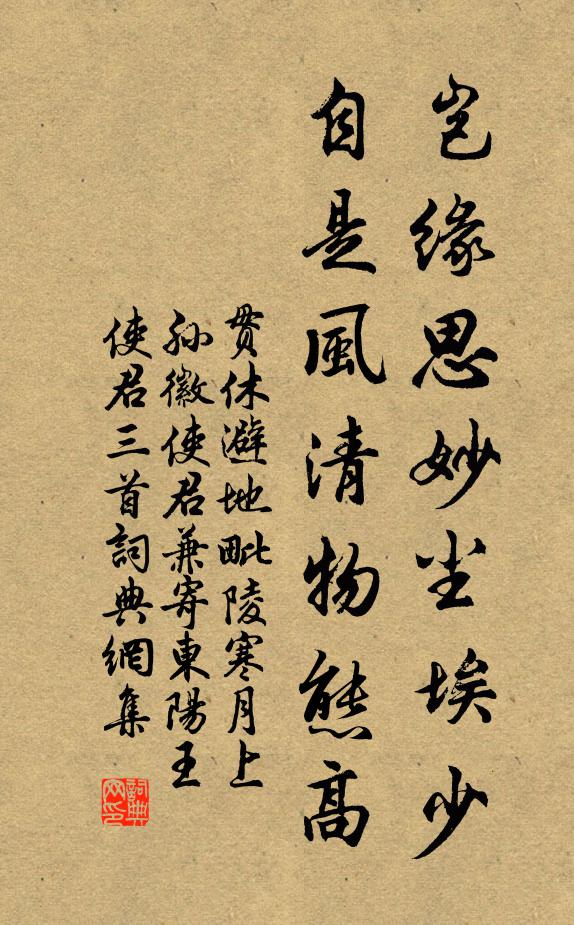 岂缘思妙尘埃少
自是風清物態高
贯休避地毗陵寒月上
孙徽使君兼寄東陽王
使君三首詞典網集
詞典网印